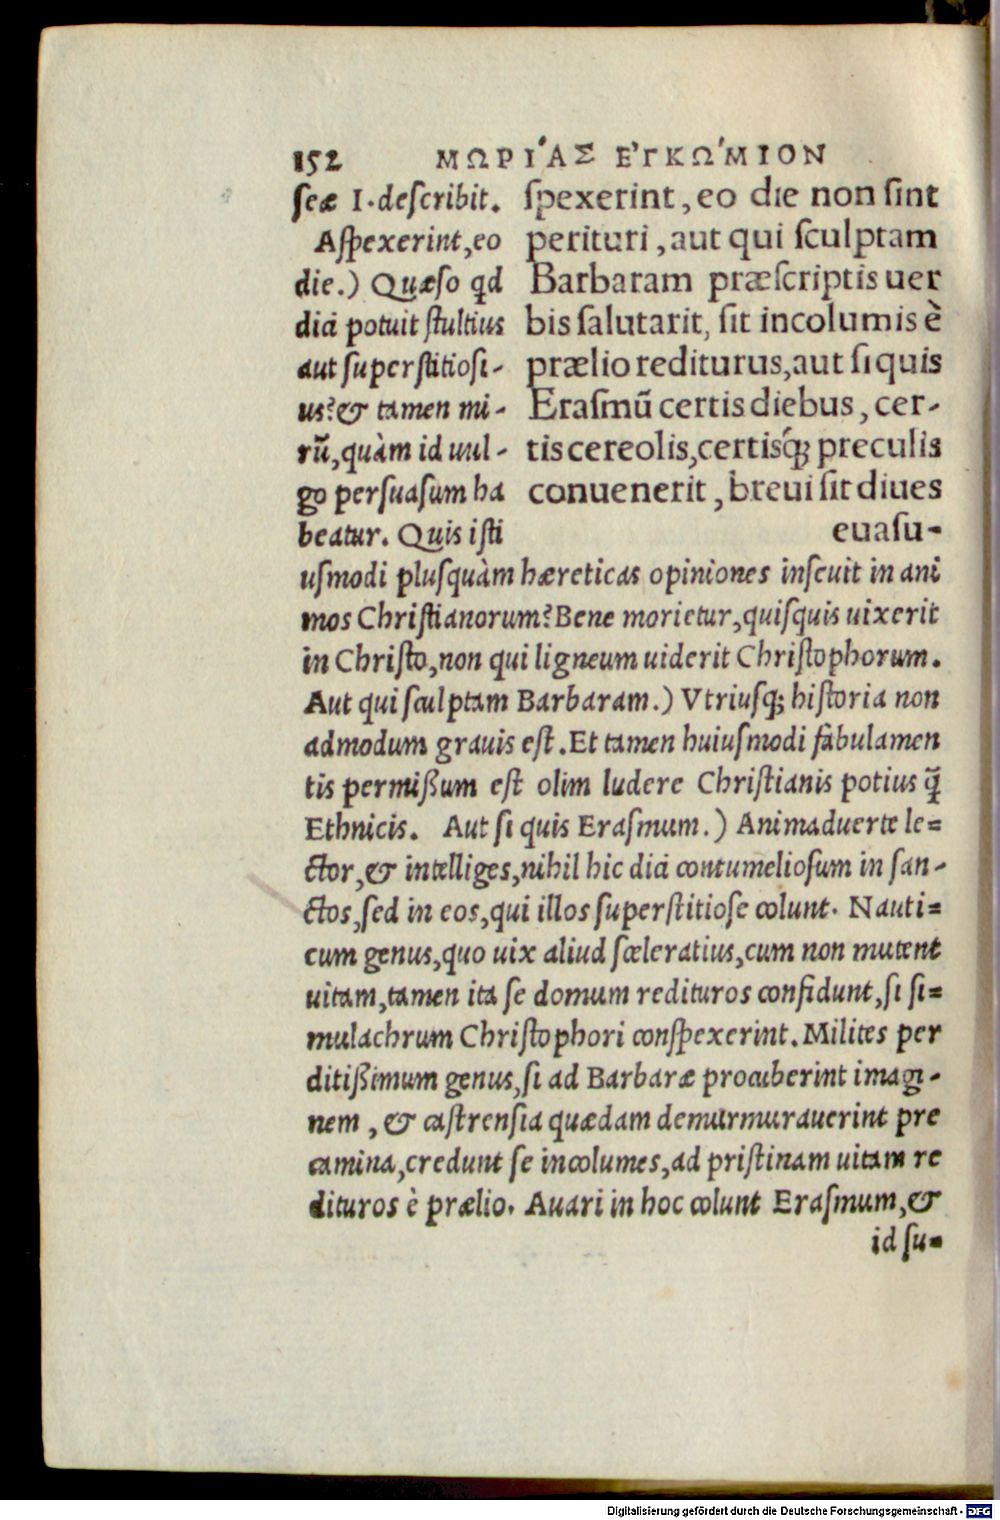 152 ΜΩΡΙ´ΑΣ ΕʼΓΚΩ´ΜΙΟΝ
ſpexerint, eo die non ſint
perituri, aut qui ſculptam
Barbaram præſcriptis uer
bis ſalutarit, ſit incolumis è
prælio rediturus, aut ſi quis
Eraſmũ certis diebus, cer-
tis cereolis, certisq́ꝫ preculis
conuenerit, breui ſit diues
euaſu-
ſeæ I. deſcribit.
Aſpexerint, eo
die.) Quæſo qd
dici potuit ſtultius
aut ſuperſtitioſi-
us? & tamen mi-
rũ, quàm id uul-
go perſuaſum ha
beatur. Quis iſti
uſmodi pluſquàm hæreticas opiniones inſeuit in ani
mos Chriſtianorum? Bene morietur, quiſquis uixerit
in Chriſto, non qui ligneum uiderit Chriſtophorum.
Aut qui ſculptam Barbaram.) Vtriuſqꝫ hiſtoria non
admodum grauis eſt. Et tamen huiuſmodi fabulamen
tis permiſſum eſt olim ludere Chriſtianis potius q̃
Ethnicis. Aut ſi quis Eraſmum.) Animaduerte le=
ctor, & intelliges, nihil hic dici contumelioſum in ſan-
ctos, ſed in eos, qui illos ſuperſtitioſe colunt. Nauti=
cum genus, quo uix aliud ſceleratius, cum non mutent
uitam, tamen ita ſe domum redituros confidunt, ſi ſi=
mulachrum Chriſtophori conſpexerint. Milites per
ditiſſimum genus, ſi ad Barbaræ procuberint imagi-
nem, & caſtrenſia quædam demurmurauerint pre
camina, credunt ſe incolumes, ad priſtinam uitam re
dituros è prælio. Auari in hoc colunt Eraſmum, &
id ſu=
Digitalisierung gefördert durch die Deutsche Forschungsgemeinschaft - DFG